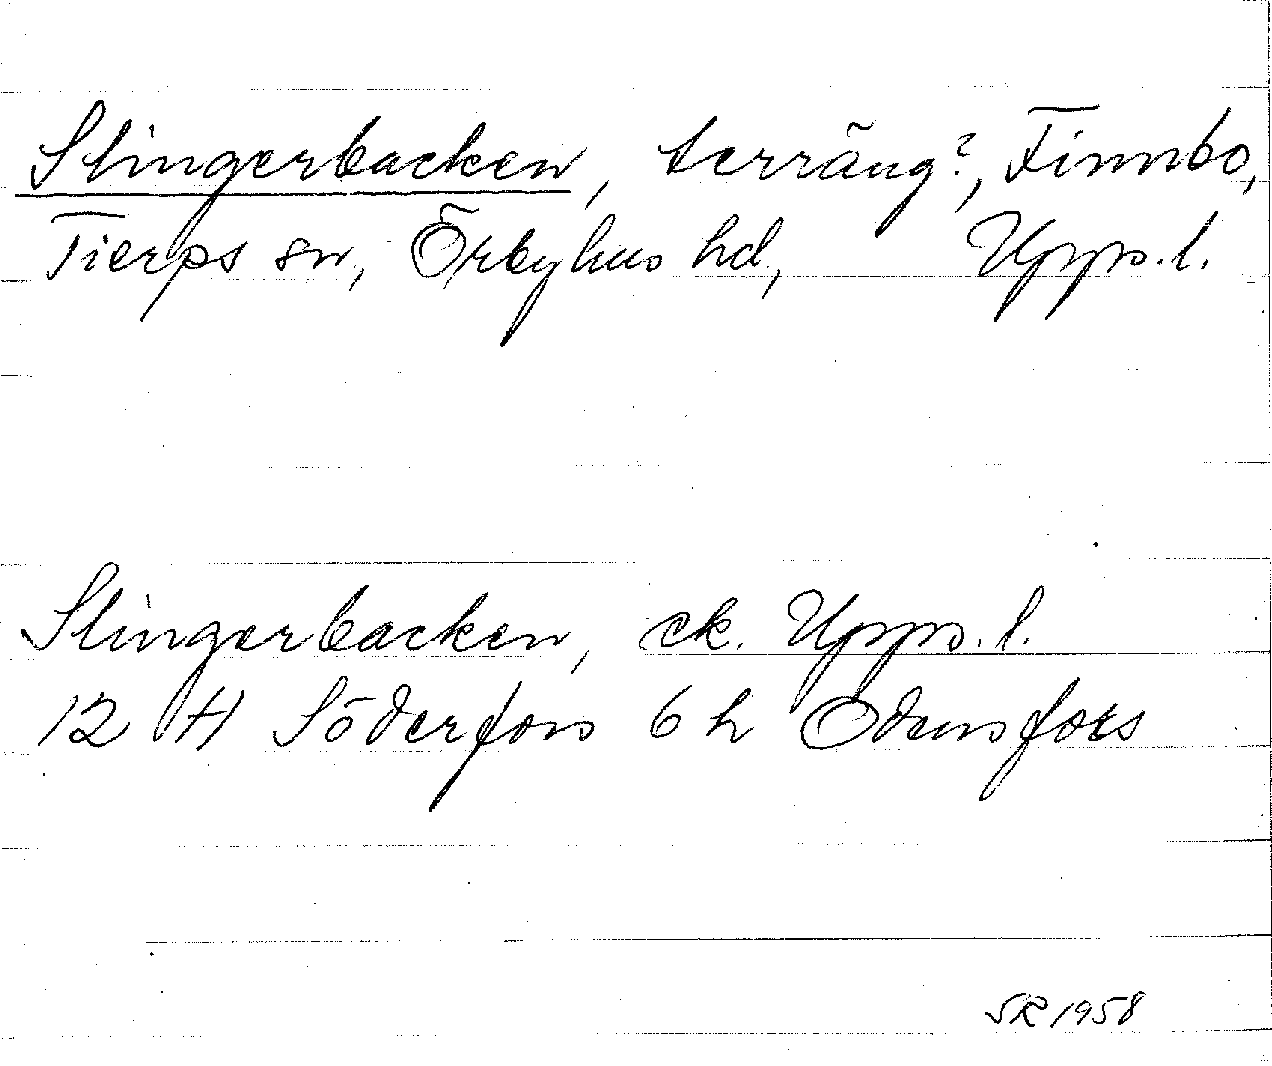 Slingerbacken, terräng?, Finnbo,
Tierps sn, Örbyhus hd, Upps. l.
Slingerbacken, ek. Upps. l.
12 H Söderfors 6 h Odensfors
SR 1958